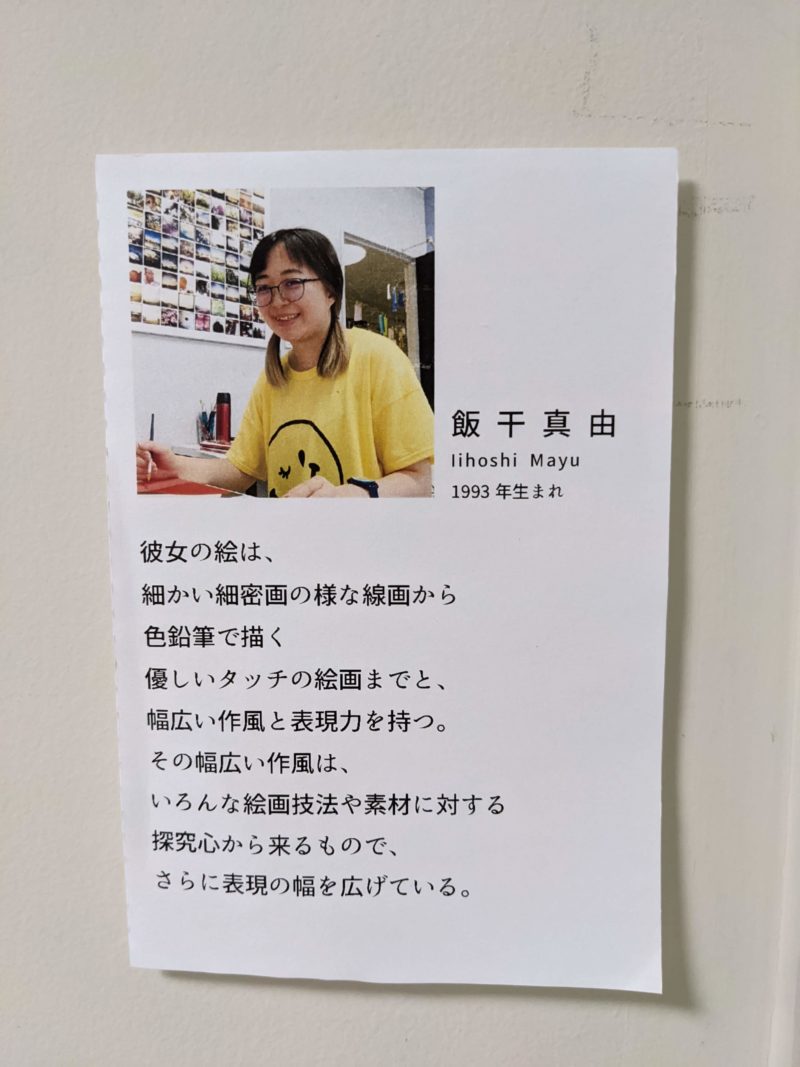 飯干真由
Iihoshi Mayu
1993年生まれ
彼女の絵は、
細かい細密画の様な線画から
色鉛筆で描く
優しいタッチの絵画までと、
幅広い作風と表現力を持つ。
その幅広い作風は、
いろんな絵画技法や素材に対する
探究心から来るもので、
さらに表現の幅を広げている。